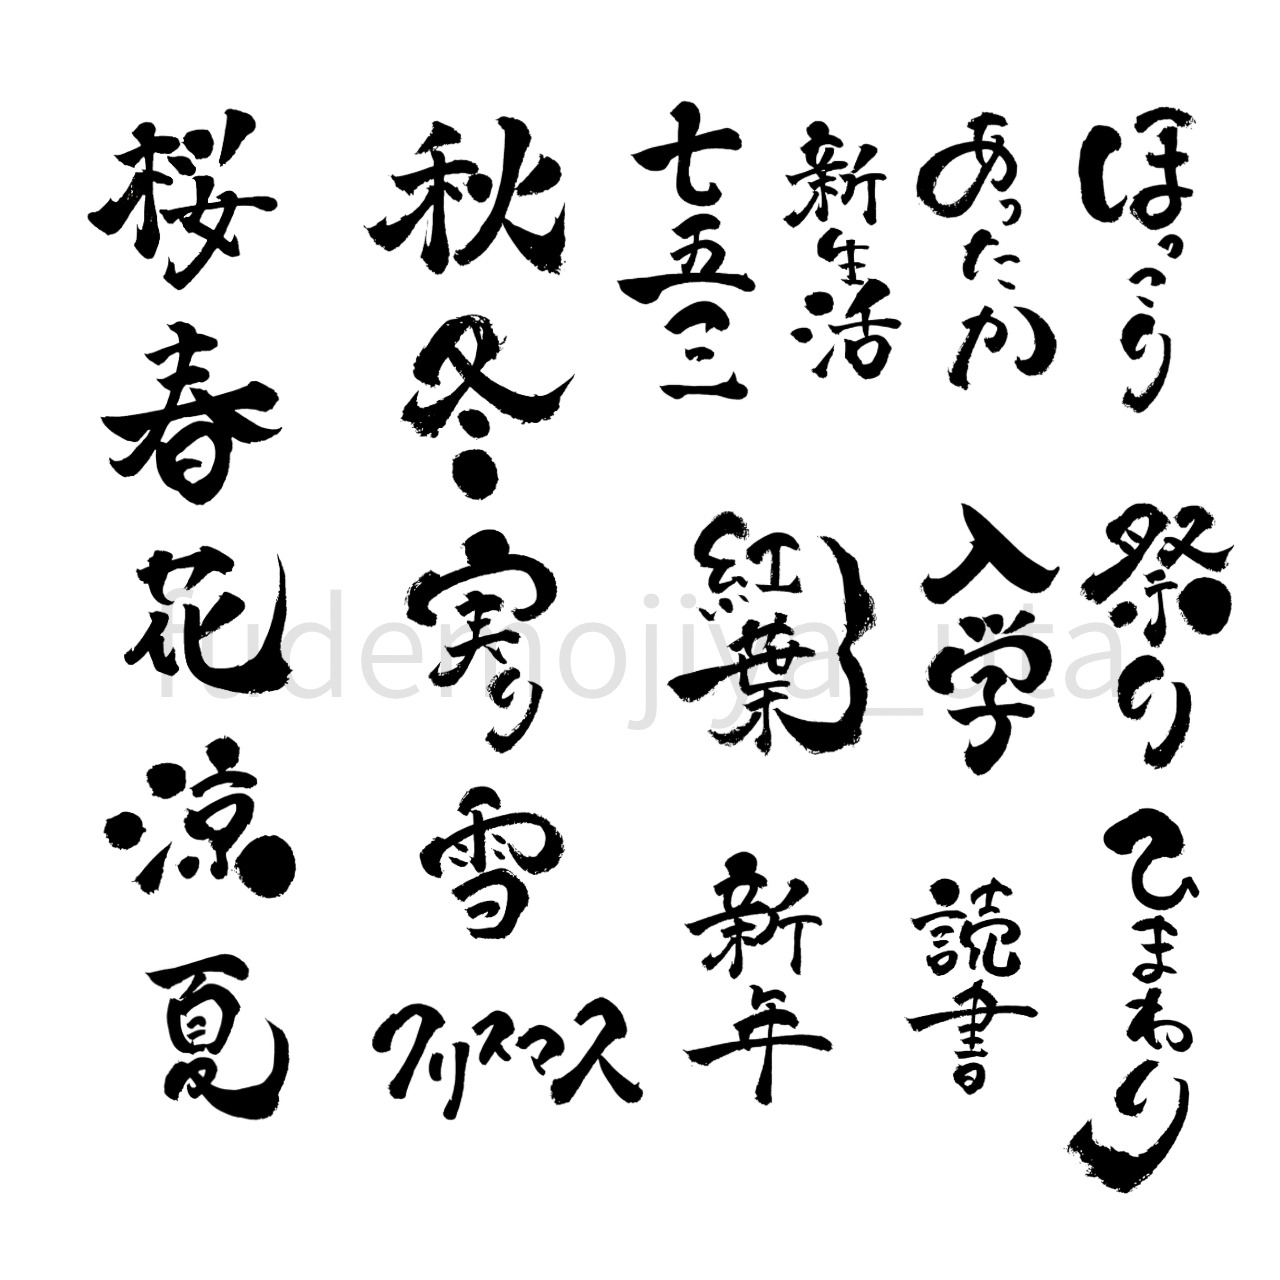 ほっこり
あったか
新生活
七五三
秋
桜
祭り
入学
紅葉
冬
春
実り
花
ひまわり
読書
新年
雪
涼
クリスマス
夏
fudemojiya_uta